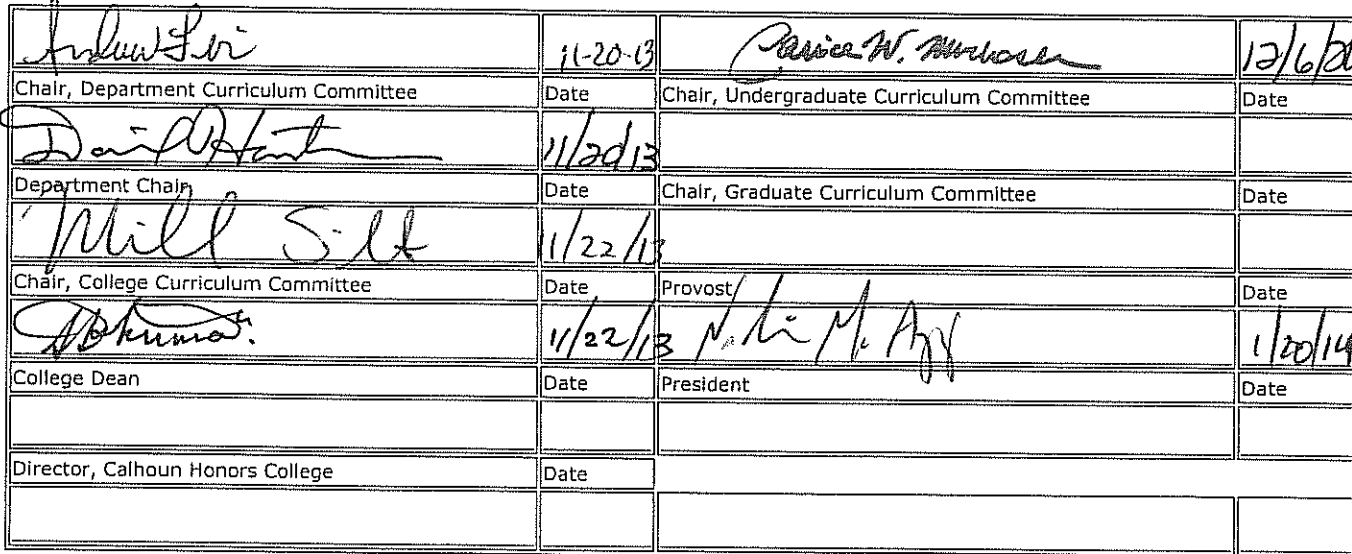 11-20-13 Janice W. Murdoch 12/6/20
Chair, Department Curriculum Committee Date Chair, Undergraduate Curriculum Committee Date
11/20/13
Department Chair Date Chair, Graduate Curriculum Committee Date
11/22/13
Chair, College Curriculum Committee Date Provost Date
11/22/13 1/20/14
College Dean Date President Date
Director, Calhoun Honors College Date